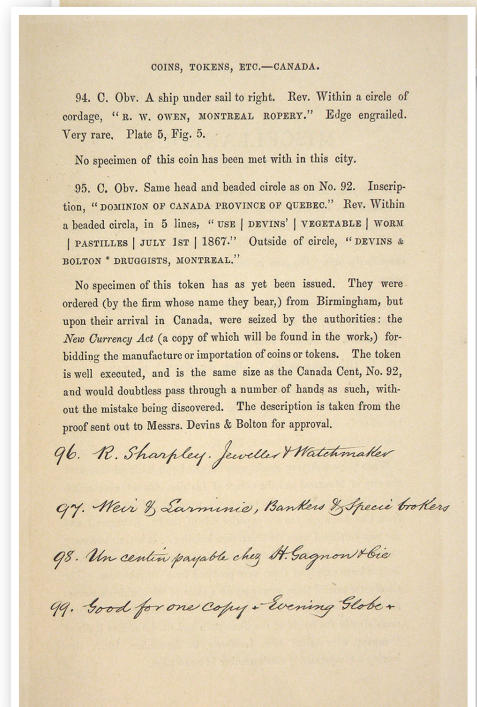 COINS, TOKENS, ETC.—CANADA.
94. C. Obv. A ship under sail to right. Rev. Within a circle of
cordage, "R. W. OWEN, MONTREAL ROPERY." Edge engrailed.
Very rare. Plate 5, Fig. 5.
No specimen of this coin has been met with in this city.
95. C. Obv. Same head and beaded circle as on No. 92. Inscrip-
tion, "DOMINION OF CANADA PROVINCE OF QUEBEC." Rev. Within
a beaded circla, in 5 lines, "USE | DEVINS' | VEGETABLE | WORM
| PASTILLES | JULY 1ST | 1867." Outside of circle, "DEVINS &
BOLTON * DRUGGISTS, MONTREAL."
No specimen of this token has as yet been issued. They were
ordered (by the firm whose name they bear,) from Birmingham, but
upon their arrival in Canada, were seized by the authorities: the
New Currency Act (a copy of which will be found in the work,) for-
bidding the manufacture or importation of coins or tokens. The token
is well executed, and is the same size as the Canada Cent, No. 92,
and would doubtless pass through a number of hands as such, with-
out the mistake being discovered. The description is taken from the
proof sent out to Messrs. Devins & Bolton for approval.
96. R. Sharpley. Jeweller & Watchmaker
97. Weir & Larminie, Bankers & Specie brokers
98. Un centin payable chez H. Gagnon & Cie
99. Good for one copy - Evening Globe -